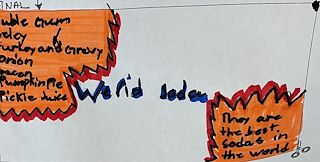 INAL
uble Gum
eley
urkey and Gravy
onion
acon
umpkin Pie
Pickle Juice
World soda
They are
the best
sodas in
the world!